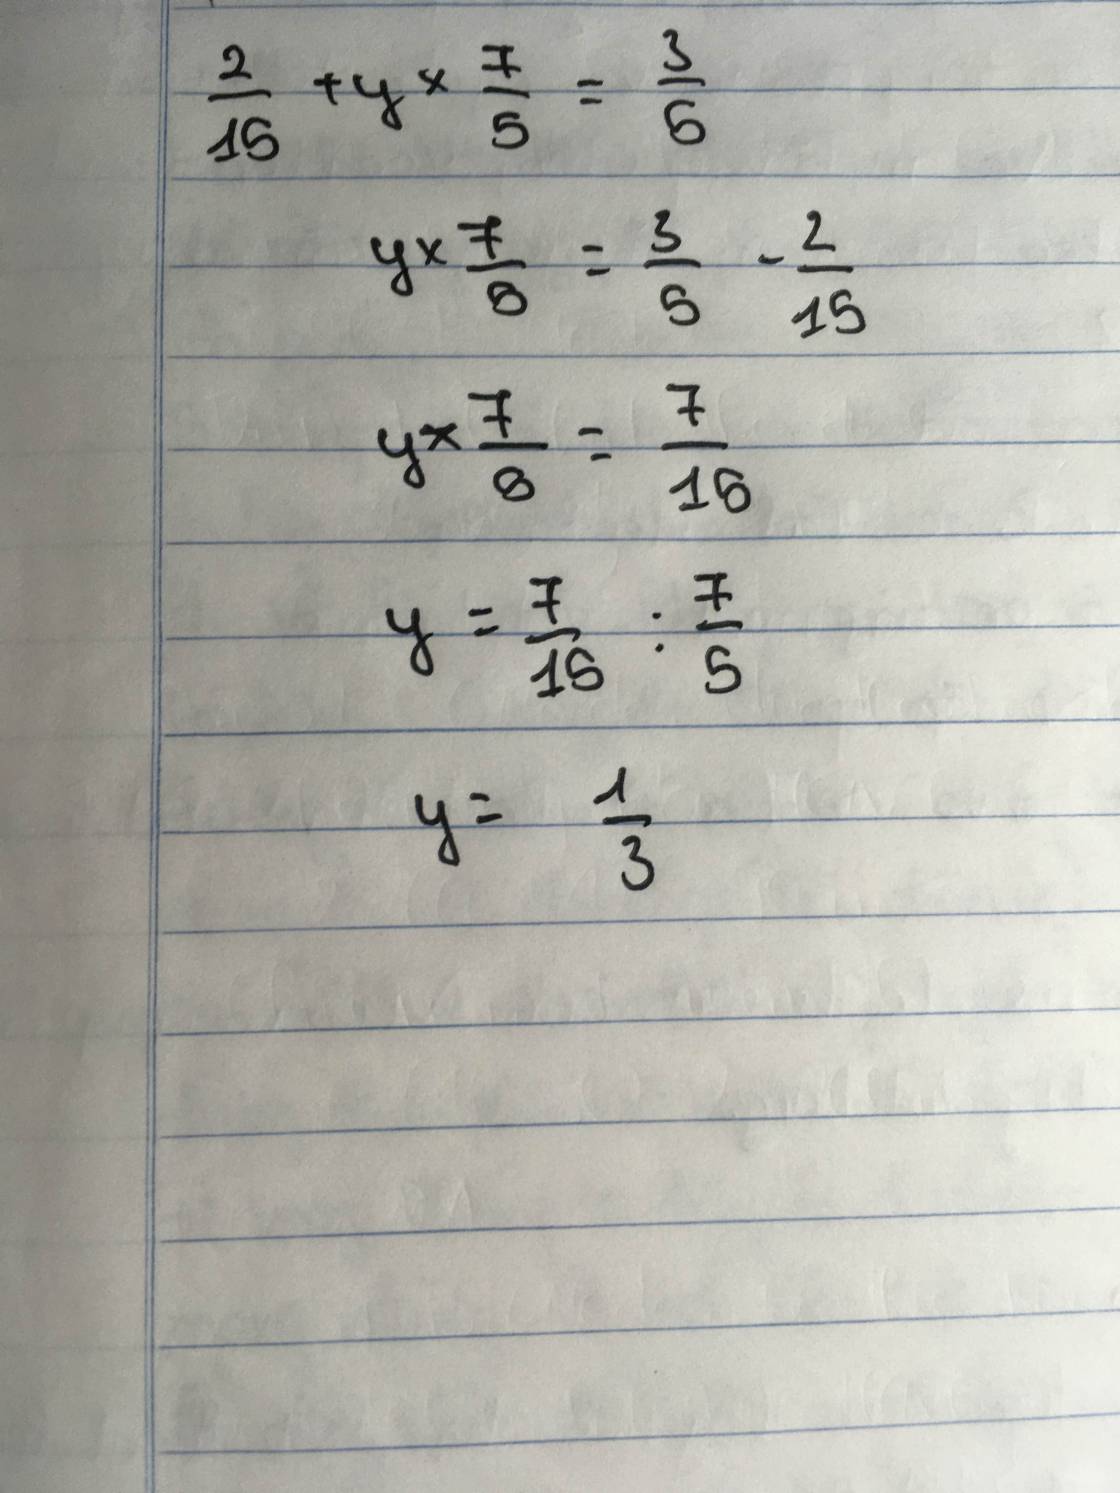 2/15 + y × 7/5 = 3/5
y × 7/5 = 3/5 - 2/15
y × 7/5 = 7/15
y = 7/15 : 7/5
y = 1/3